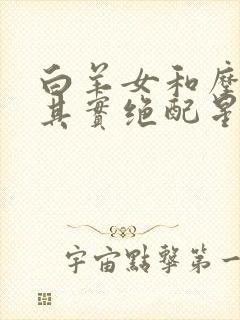 白羊女和摩
其實绝配星
宇宙點擊第一